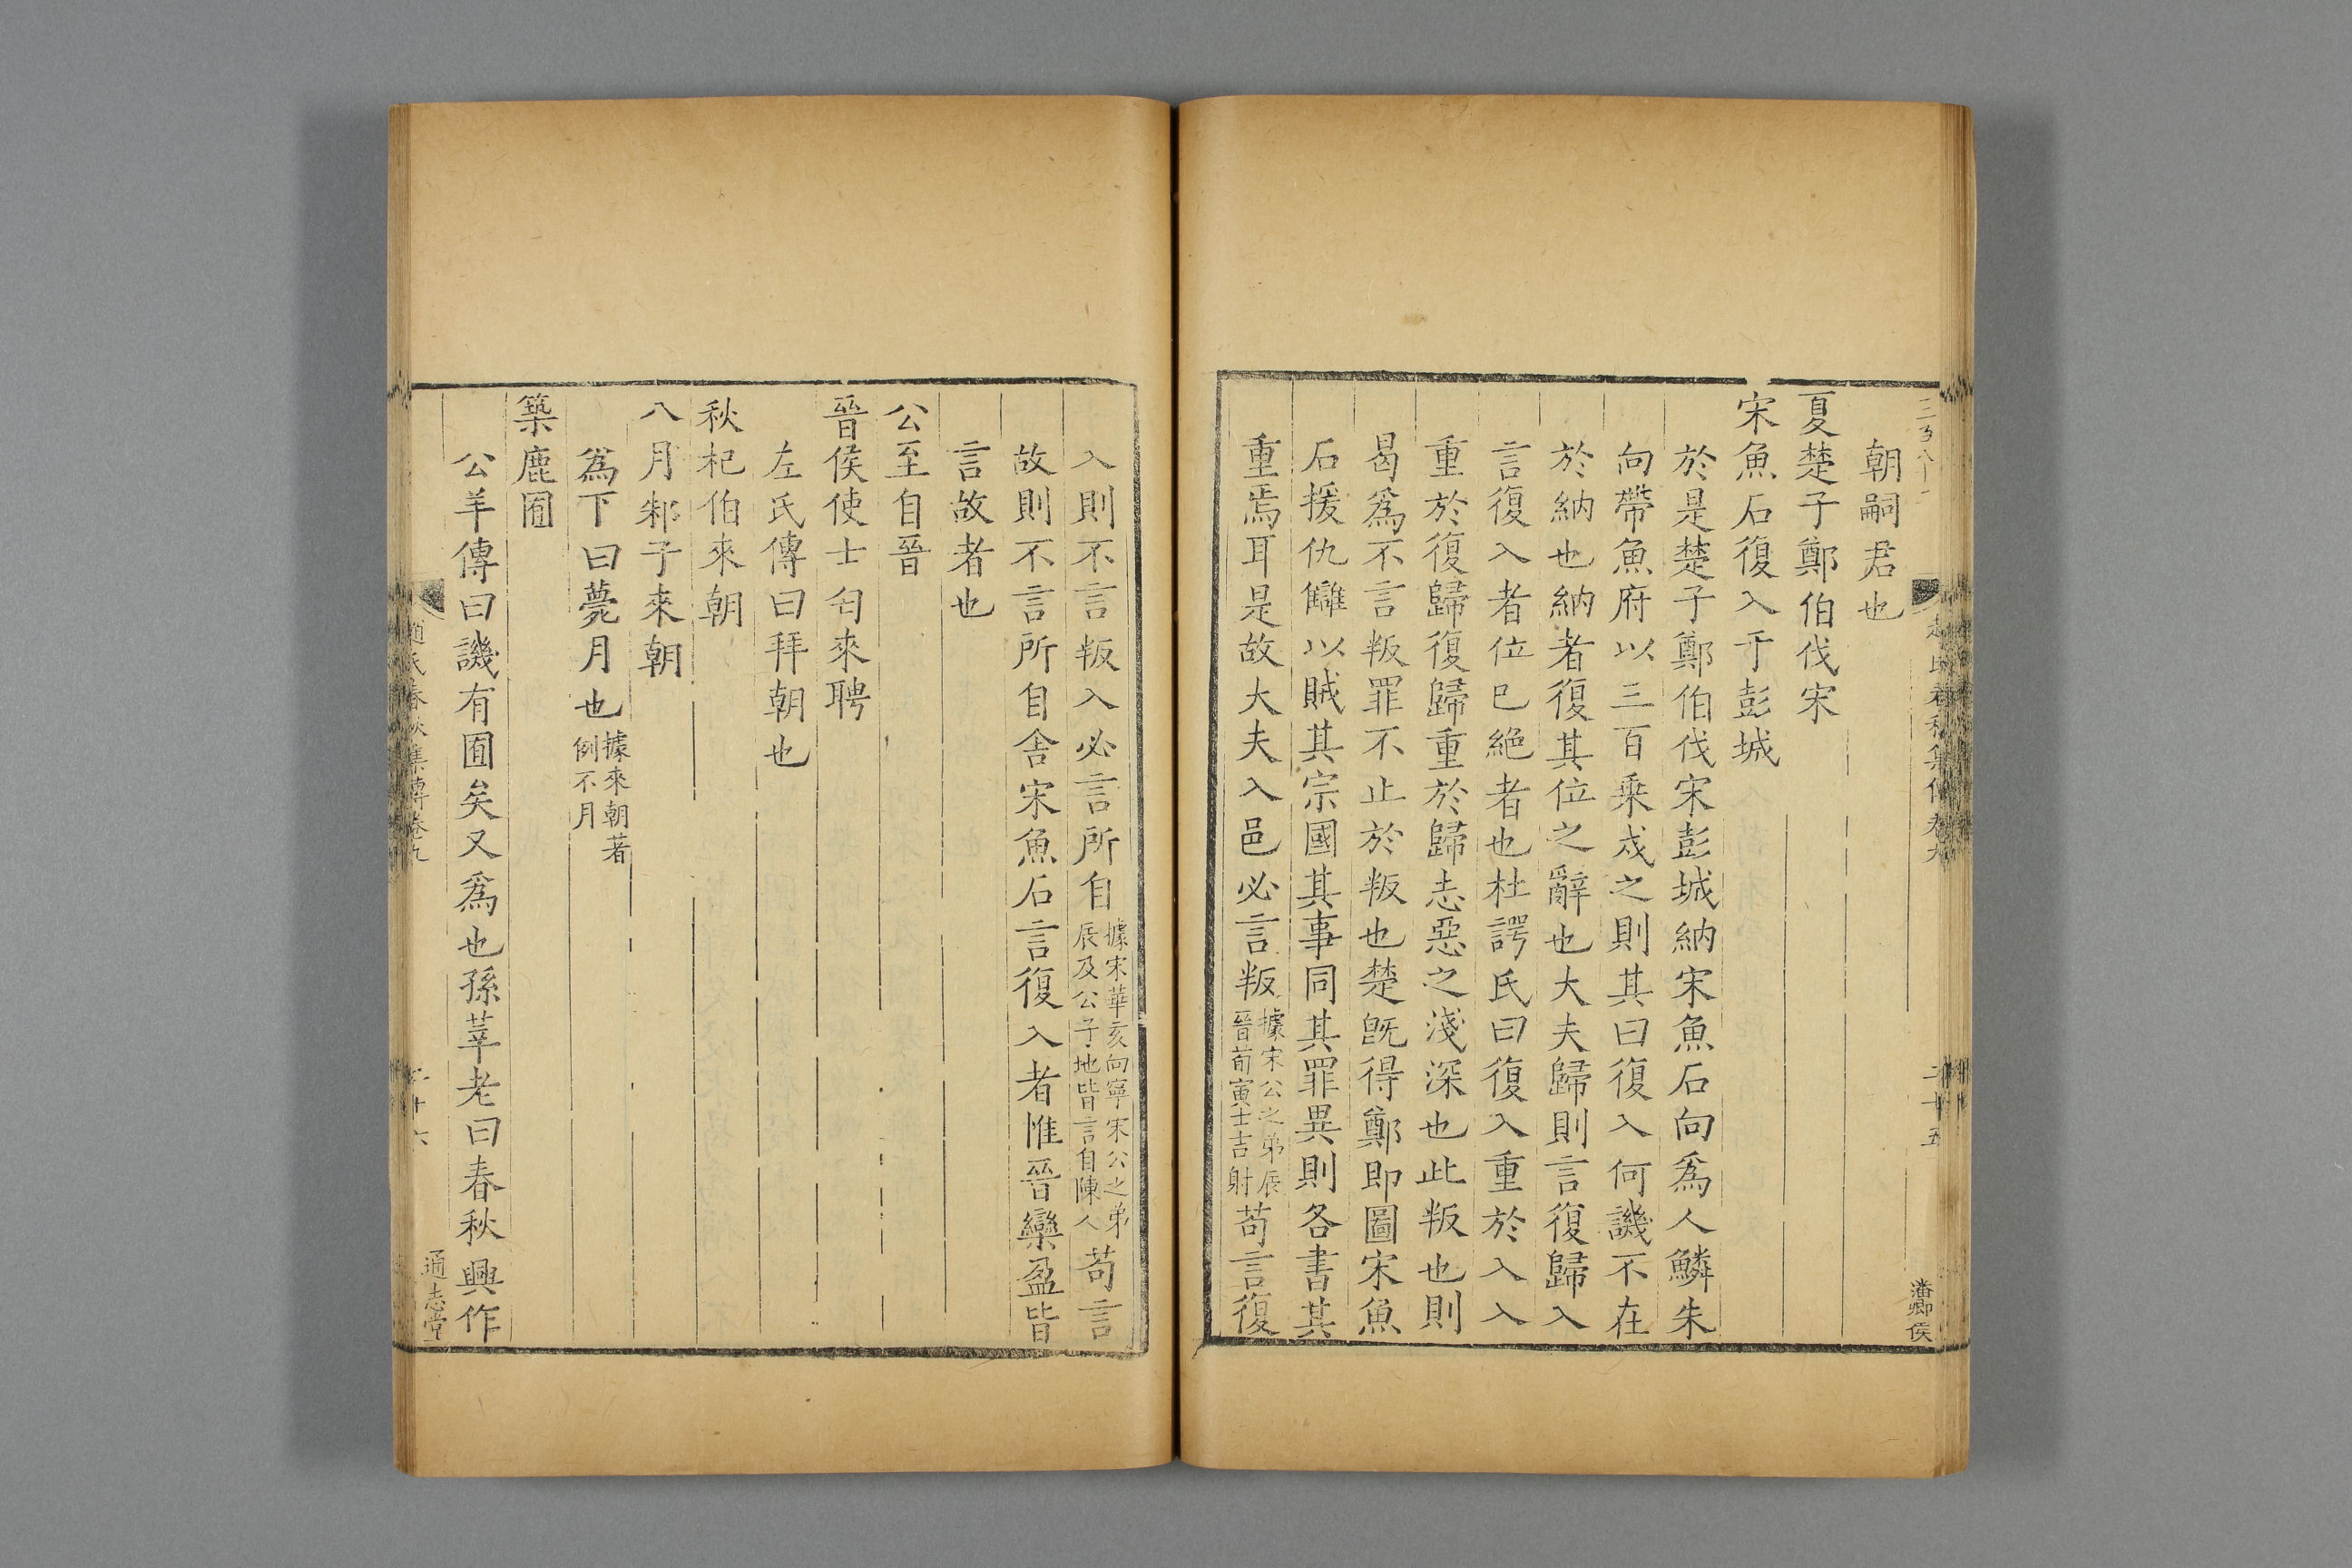 朝嗣君也
夏楚子鄭伯伐宋
宋魚石復入于彭城
於是楚子鄭伯伐宋彭城納宋魚石向爲人鱗朱
向帶魚府以三百乘戍之則其曰復入何譏不在
於納也納者復其位之辭也大夫歸則言復歸入
言復入者位已絶者也杜諤氏曰復入重於入入
重於復歸復歸重於歸志惡之淺深也此叛也則
曷爲不言叛罪不止於叛也楚旣得鄭即圖宋魚
石援仇讎以賊其宗國其事同其罪異則各書其
重焉耳是故大夫入邑必言叛據宋公之弟辰晉荀寅士吉射苟言復
潘卿侯
入則不言叛入必言所自據宋華亥向寧宋公之弟辰及公子地皆言自陳人苟言
故則不言所自舍宋魚石言復入者惟晉欒盈皆
言故者也
公至自晉
晉侯使士匄來聘
左氏傳曰拜朝也
秋杞伯來朝
八月邾子來朝
爲下曰薨月也據來朝著例不月
築鹿囿
公羊傳曰譏有囿矣又爲也孫莘老曰春秋興作
通志堂